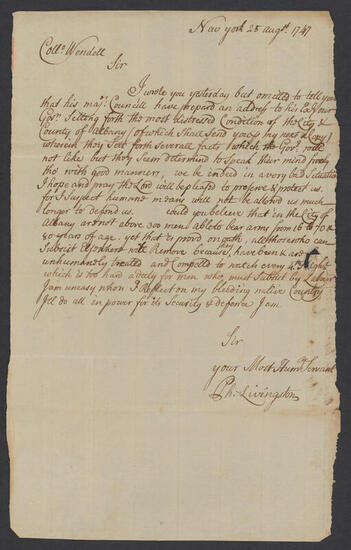 New york 25 augst. 1747
Collo. Wendell
Sir
I wrote you yesterday but omitted to tell you
that his majs. Councill have prepard an address to his Ex
Govr. Setting forth the most distressed Condition of the City &
County of albany (of which Shall Send you p my next a Copy)
wherein they Sett forth Severall facts which the Govr. will
not like but they Seem determind to Speak their mind freely
tho with good manners, we be indeed in a very bad Situation
I hope and pray the Lord will be pleasd to preserve & protect us.
for I suspect humane means will not be allowd us much
longer to defend us. would you believe that in the City of
Albany are not above 200 men able to bear arms from 16 to 70 &
80 years of age. yet that is provd on oath, all those who can
Subsist Elsewhere will Remove because, have been & are
unhumandly treated and Compelld to watch every Night
which is too hard a duty for men who must Subsist by Labour
I am uneasy when I Reflect on my bleeding native Country
I'el do all in power for its Security & defence I am.
Sir
your Most Humb. Servant
Ph: Livingston